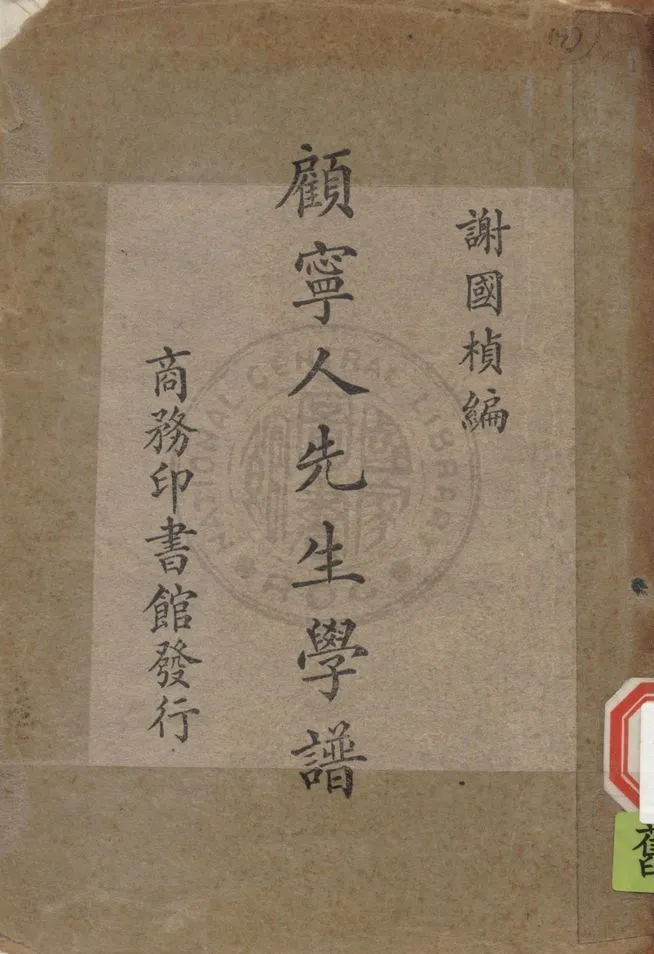 謝國楨編
顧寧人先生學譜
商務印書館發行
NATIONAL GENERAL LIBRARY
舊